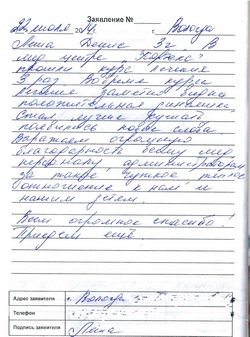 Заявление №
22 июля 2014г. Вологда
Денис 3г В
мед центре
прошёл курс лечения
3 раз Во время курса
лечения заметно видна
положительная динамика
Стал лучше кушать
появились новые слова
Выражаем огромную
благодарность всему мед
персоналу администраторам
за такое чуткое тёплое
отношение к нам и
нашим детям.
Всем огромное спасибо!
Приедем ещё
Адрес заявителя г. Вологда
Телефон
Подпись заявителя